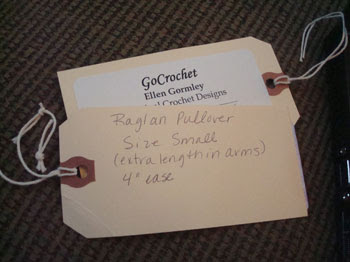 GoCrochet
Ellen Gormley
Crochet Designs
Raglan Pullover
Size Small
(extra length in arms)
4" ease